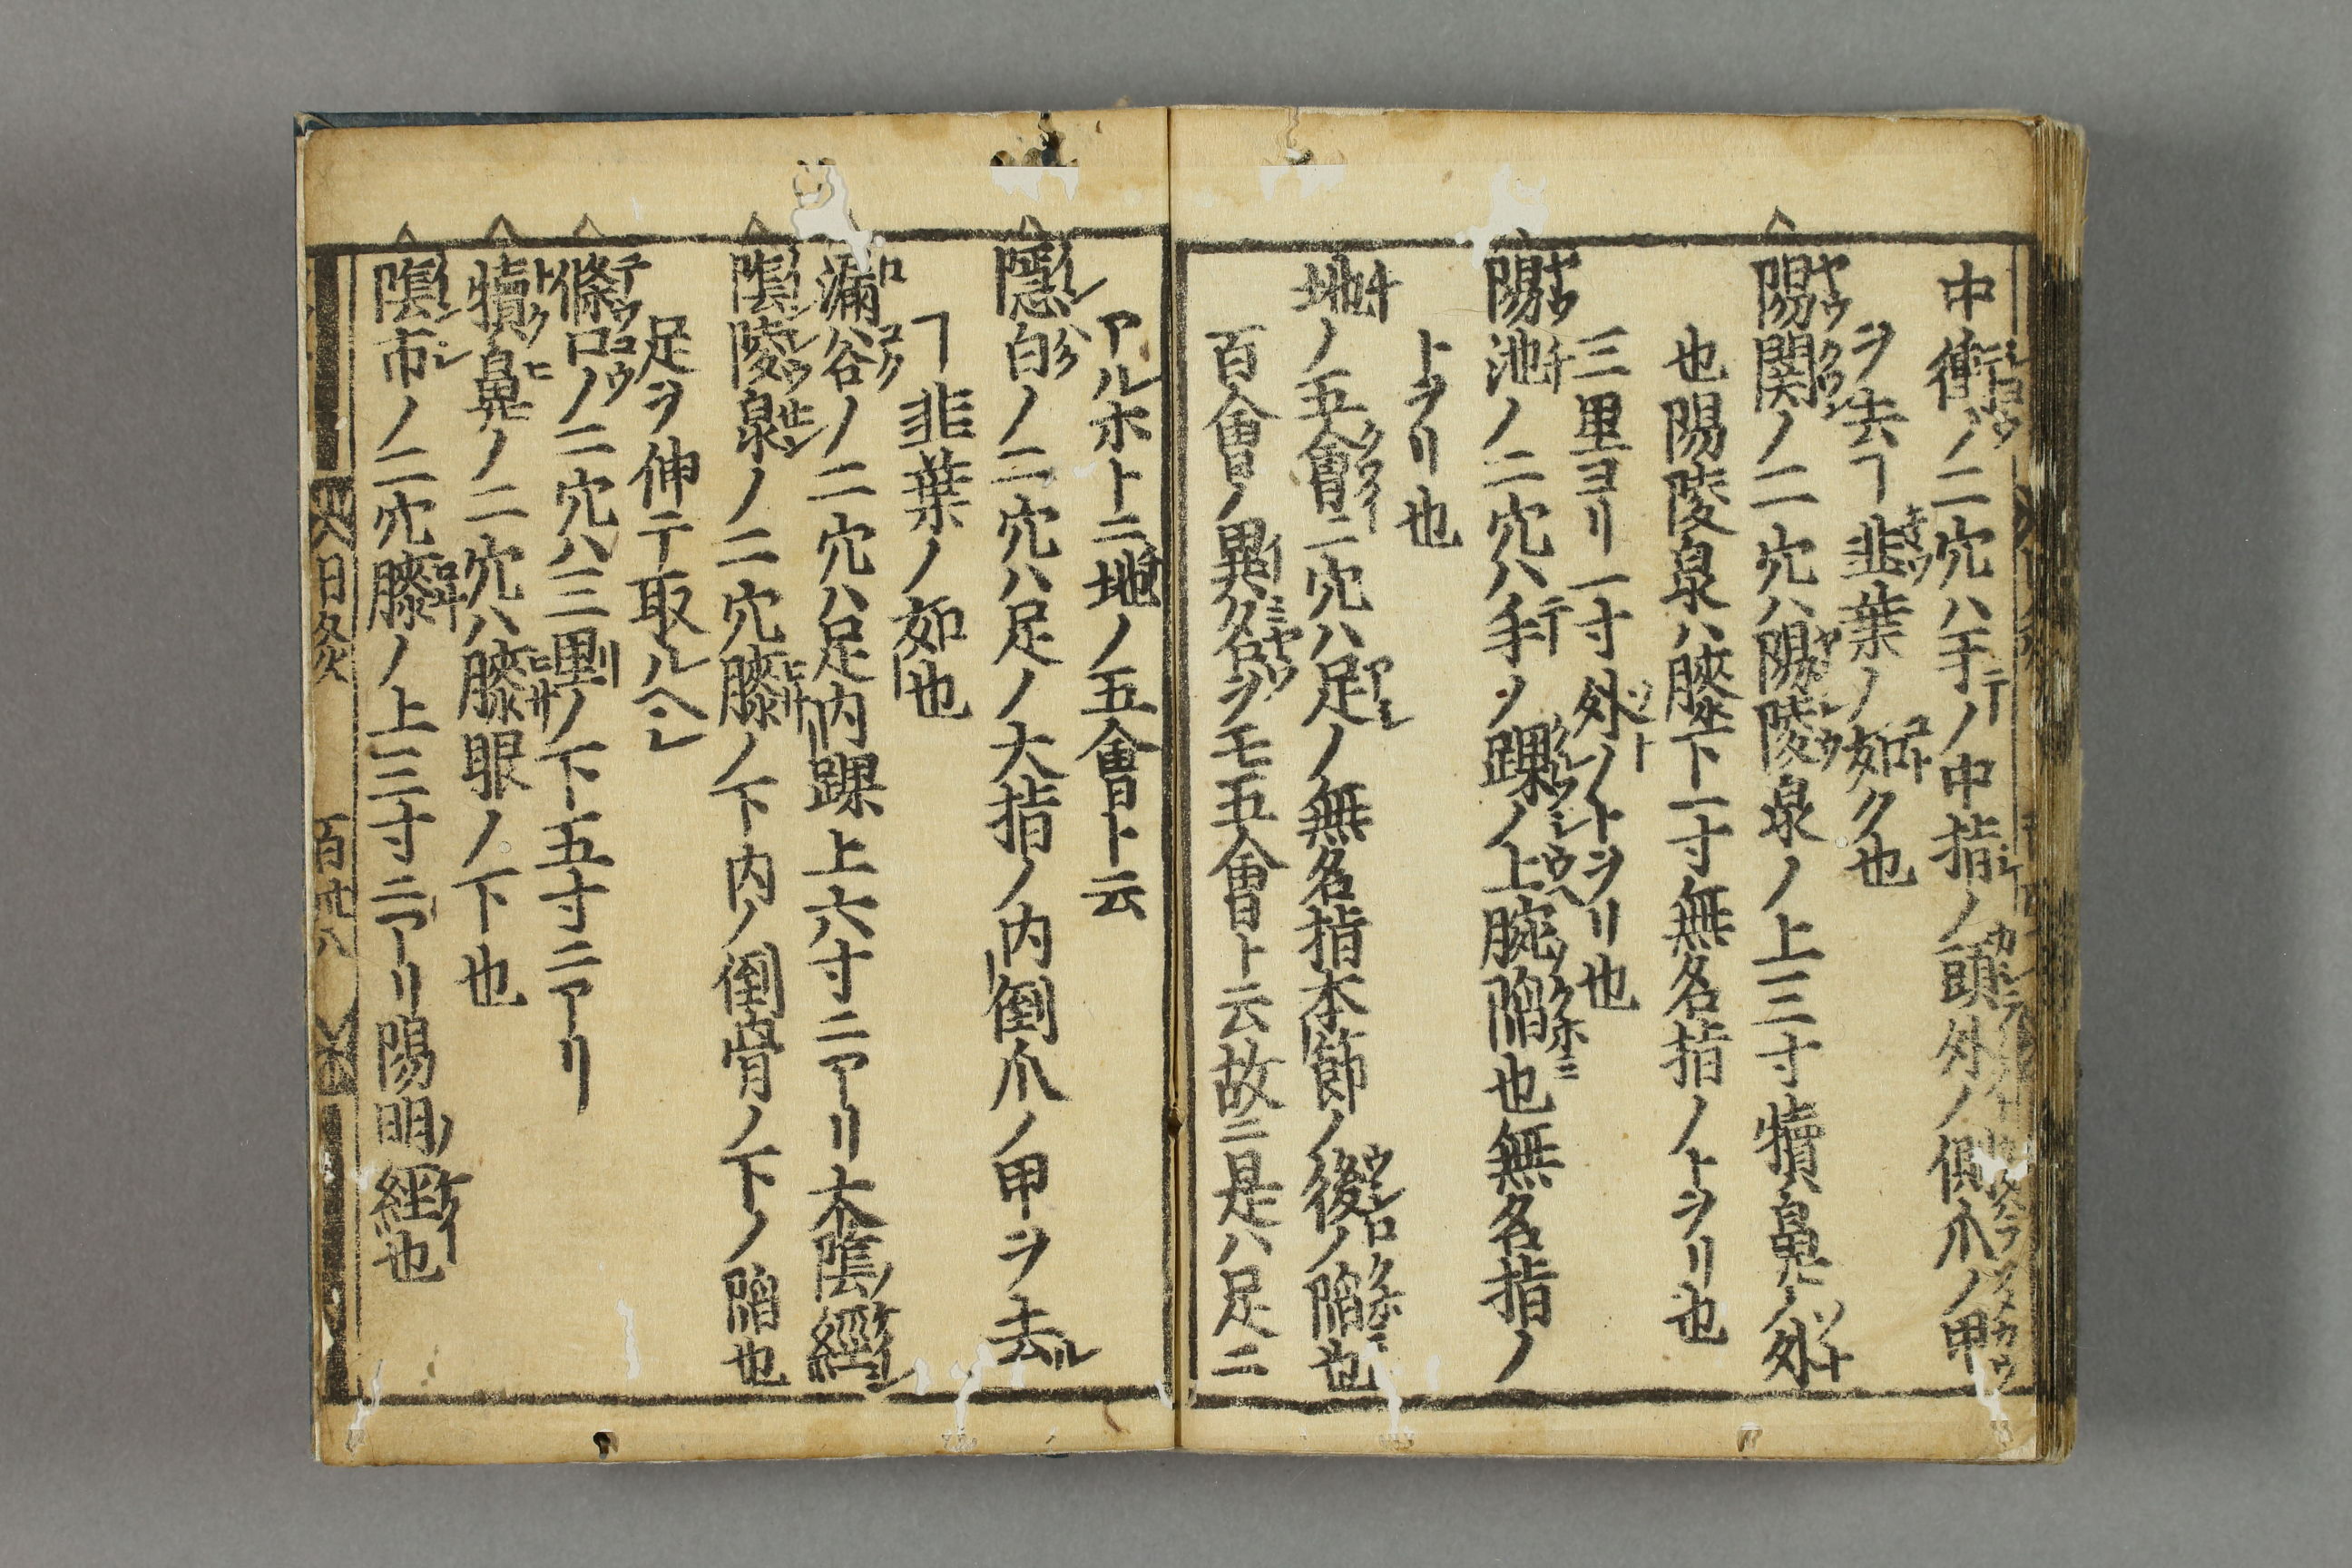 中衝ノ二穴ハ手ノ中指ノ頭外ノ傍爪ノ甲
ヲ去ヿ韭葉ノ如ク也
陽関ノ二穴ハ陽陵泉ノ上三寸犢鼻ノ外
也陽陵泉ハ膝下一寸無名指ノトヲリ也
三里ヨリ一寸外ノトヲリ也
陽池ノ二穴ハ手ノ踝ノ上腕陥也無名指ノ
トヲリ也
地ノ五會二穴ハ足ノ無名指本節ノ後ノ陥也
百會ノ異名ヲモ五會ト云故ニ是ハ足ニ
アルホトニ地ノ五會ト云
隱白ノ二穴ハ足ノ大指ノ内側爪ノ甲ヲ去ル
ヿ韭葉ノ如也
漏谷ノ二穴ハ足内踝上六寸ニアリ太陰ノ經
陰陵泉ノ二穴膝ノ下内ノ側骨ノ下ノ陥也
足ヲ伸テ取ルヘシ
條口ノ二穴ハ三里ノ下五寸ニアリ
犢鼻ノ二穴ハ膝眼ノ下也
陰市ノ二穴膝ノ上三寸ニアリ陽明ノ経也
日灸